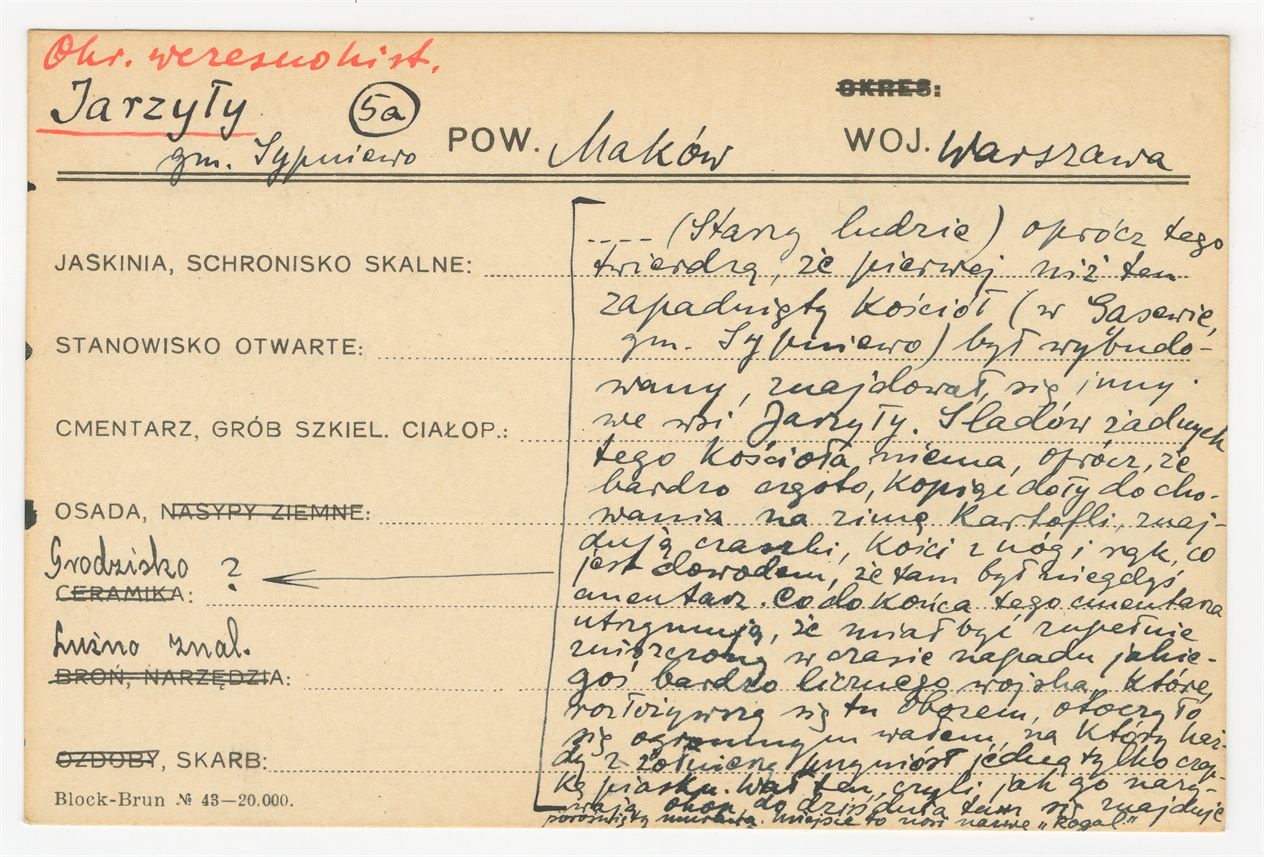 Okr. wczesnohist.
Jarzyły (5a)
gm. Sypniewo
POW. Maków
OKRES:
WOJ. Warszawa
JASKINIA, SCHRONISKO SKALNE:
STANOWISKO OTWARTE:
CMENTARZ, GRÓB SZKIEL. CIAŁOP.:
OSADA, NASYPY ZIEMNE:
Grodzisko ?
CERAMIKA:
Luźno znal.
BROŃ, NARZĘDZIA:
OZDOBY, SKARB:
Block-Brun № 43—20.000.
.... (Starzy ludzie) oprócz tego
twierdzą, że pierwej niż ten
zapadnięty kościół (w Gąsewie,
gm. Sypniewo) był wybudo-
wany, znajdował się inny
we wsi Jarzyły. Śladów żadnych
tego kościoła niema, oprócz, że
bardzo często, kopiąc doły do cho-
wania na zimę kartofli, znaj-
dują czaszki, kości z nóg i rąk, co
jest dowodem, że tam był niegdyś
cmentarz. Co do końca tego cmentarza
utrzymują, że miał być zupełnie
zniszczony w czasie napadu jakie-
goś bardzo licznego wojska, które,
rozłożywszy się tu obozem, otoczyło
się ogromnym wałem, na który każ-
dy z żołnierzy przyniósł jedną tylko czap-
kę piasku. Wał ten, czyli jak go nazy-
wają okop, do dziś dnia tam się znajduje
porośnięty murawą. Miejsce to nosi nazwę „Rogal”